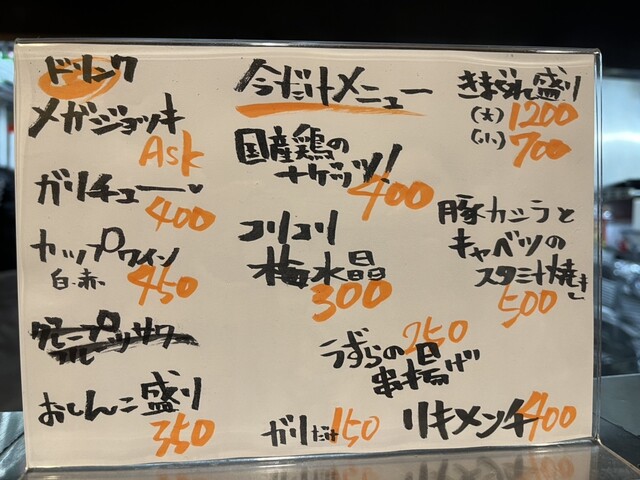 ドリンク
メガジョッキ
Ask
ガリチュー♥
400
カップワイン
白・赤
450
グレープフルーツサワー
おしんこ盛り
350
今だけメニュー
国産鶏の
ナゲッツ!
400
コリコリ
梅水晶
300
うずらの
串揚げ
250
ガリだけ 150
きまぐれ盛り
(大) 1200
(小) 700
豚カシラと
キャベツの
スタミナ焼き
500
リキメンチ 400